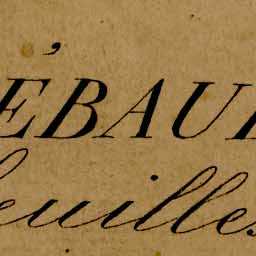 ÉBAU
euilles